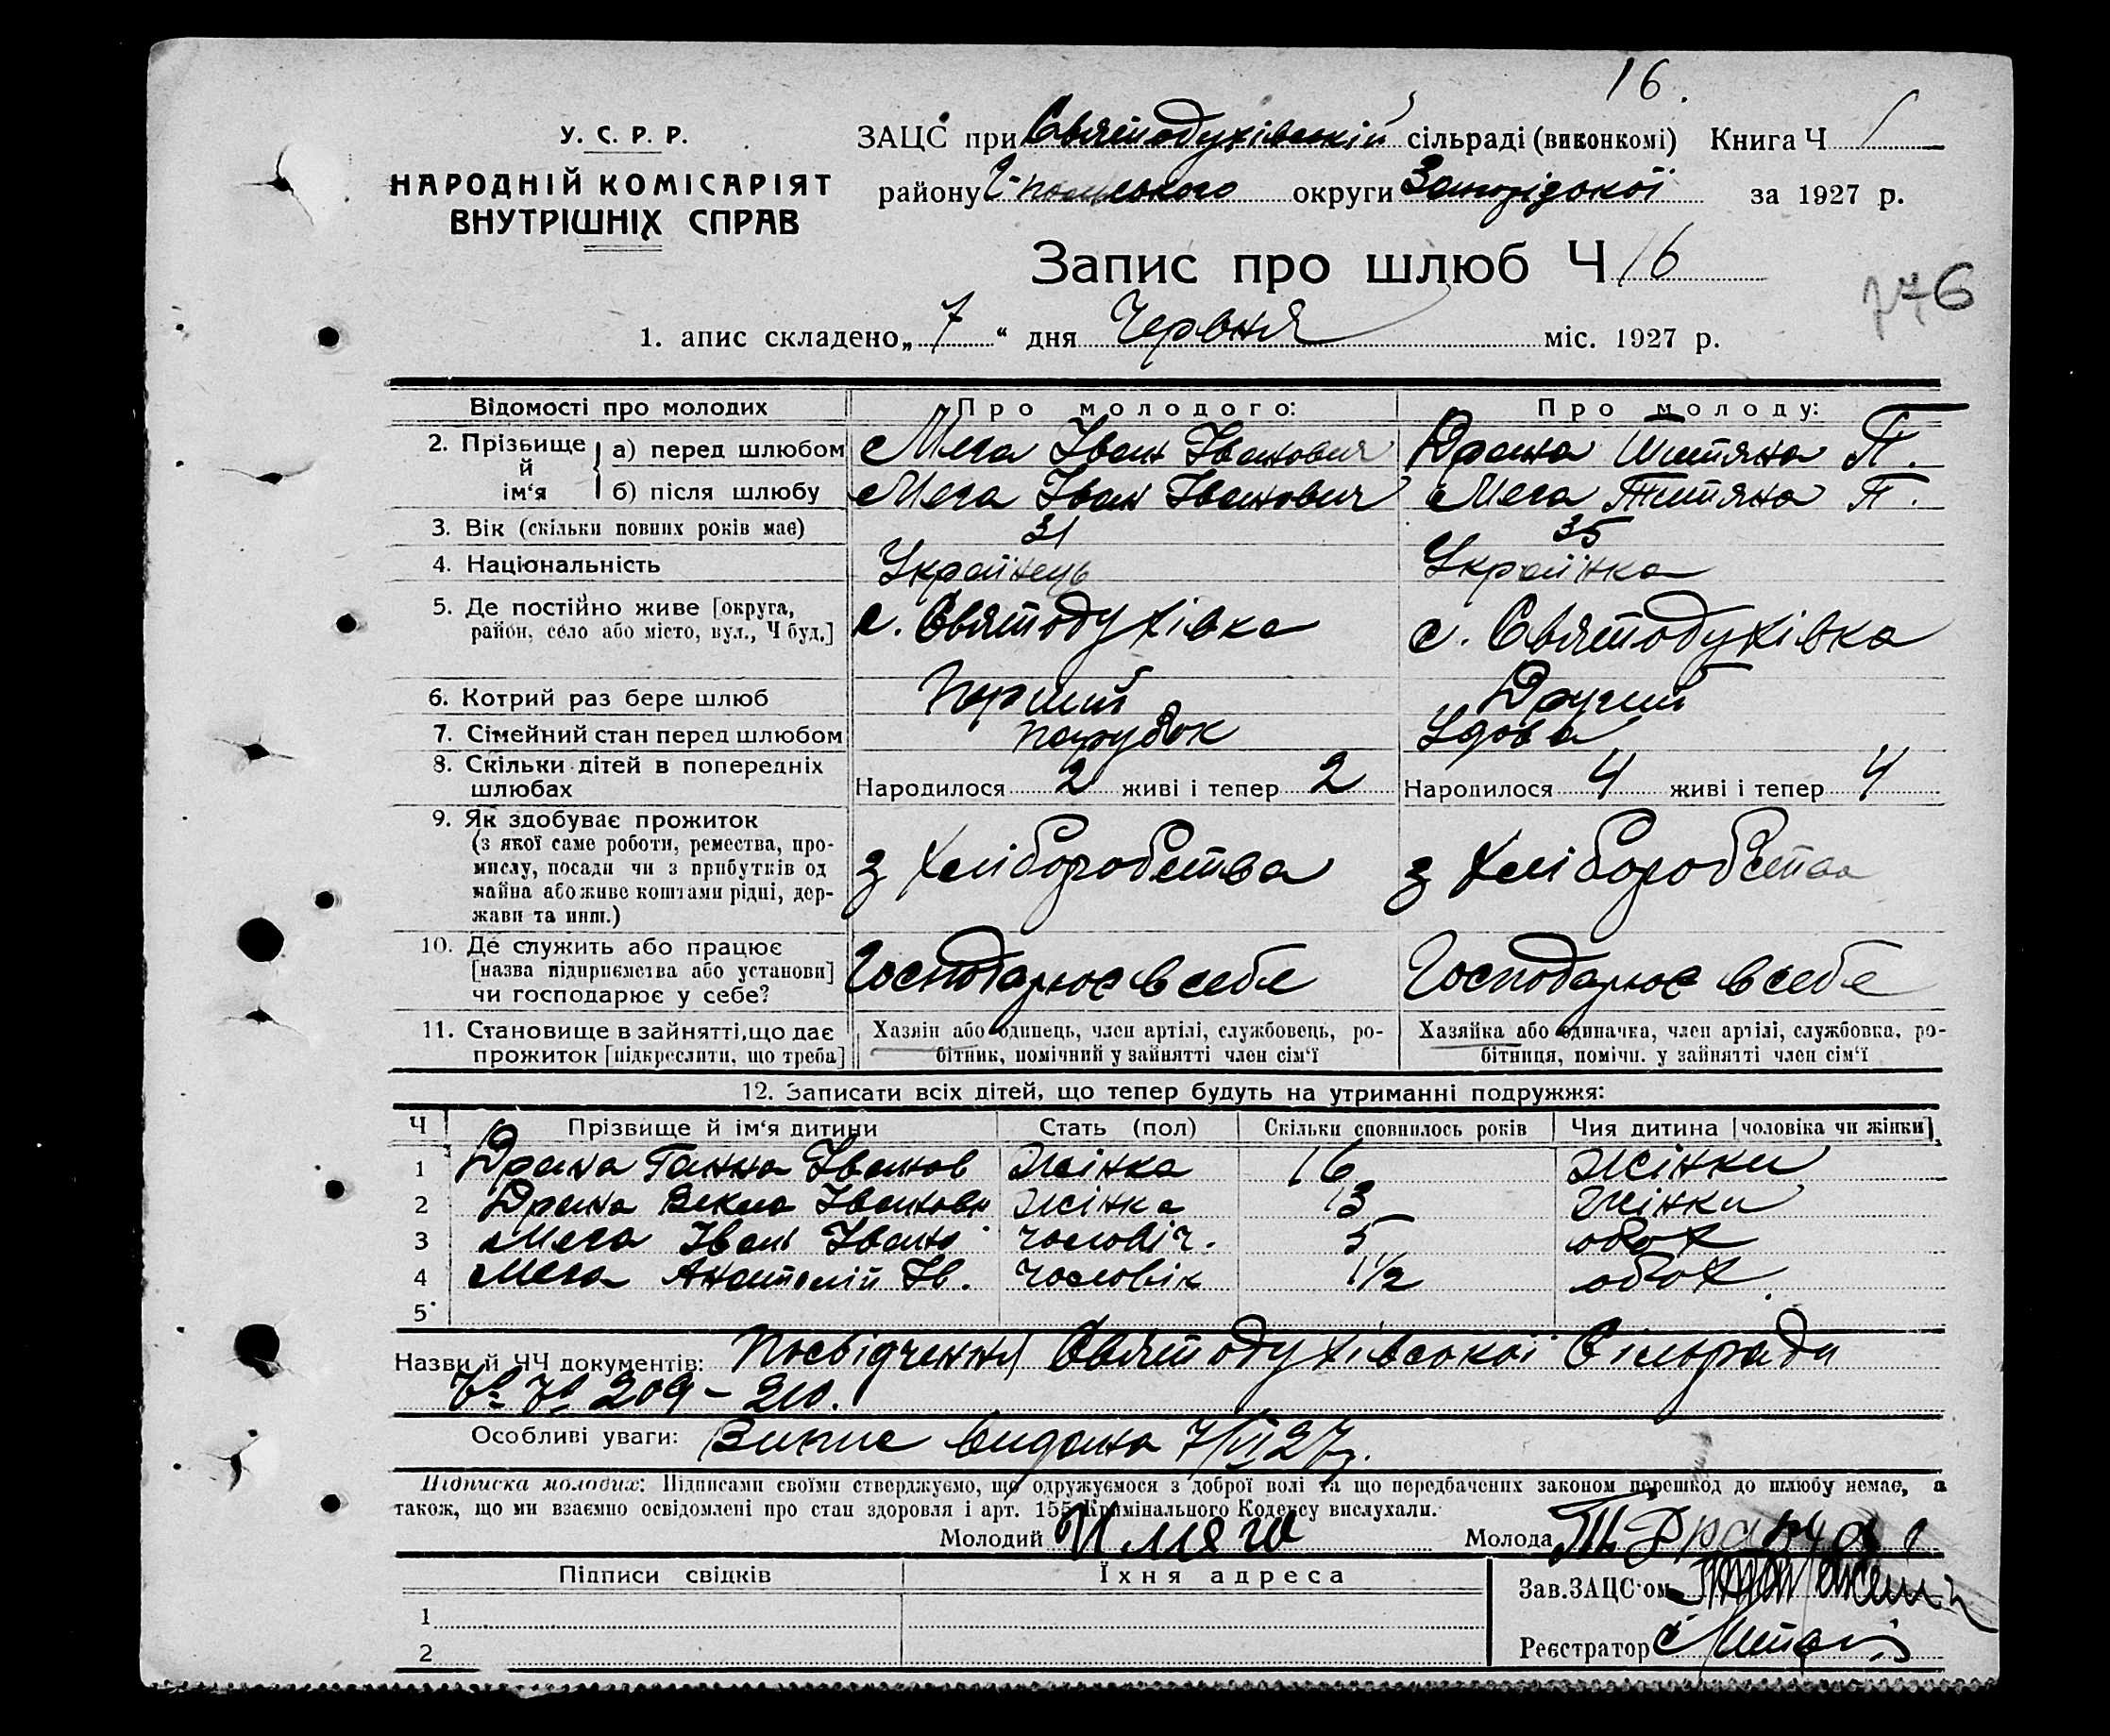 16.
У. С. Р. Р.
НАРОДНІЙ КОМІСАРІЯТ
ВНУТРІШНІХ СПРАВ
ЗАЦС при Святодухівській сільраді (виконкомі) Книга Ч
району округи Запорізької за 1927 р.
Запис про шлюб Ч 16
176
1. апис складено „7“ дня Червня міс. 1927 р.
Відомості про молодих Про молодого: Про молоду:
2. Прізвище й ім‘я а) перед шлюбом Мега Іван Іванович Драна Титяна П.
б) після шлюбу Мега Іван Іванович Мега Титяна П.
3. Вік (скільки повних років має) 31 35
4. Національність Українець Українка
5. Де постійно живе [округа, район, село або місто, вул., Ч буд.] с. Святодухівка с. Святодухівка
6. Котрий раз бере шлюб Перший Другий
7. Сімейний стан перед шлюбом парубок Удова
8. Скільки дітей в попередніх шлюбах Народилося 2 живі і тепер 2 Народилося 4 живі і тепер 4
9. Як здобуває прожиток (з якої саме роботи, ремества, промислу, посади чи з прибутків од майна або живе коштами рідні, держави та инш.) з хліборобства з хліборобства
10. Де служить або працює [назва підприємства або установи] чи господарює у себе? Господарює в себе Господарює в себе
11. Становище в зайнятті, що дає прожиток [підкреслити, що треба] Хазяїн або одинець, член артілі, службовець, робітник, помічний у зайнятті член сім‘ї Хазяйка або одиначка, член артілі, службовка, робітниця, помічн. у зайнятті член сім‘ї
12. Записати всіх дітей, що тепер будуть на утриманні подружжя:
Ч Прізвище й ім‘я дитини Стать (пол) Скільки сповнилось років Чия дитина [чоловіка чи жінки]
1 Драна Ганна Іванов Жінка 16 Жінки
2 Драна Векла Івановн Жінка 13 Жінки
3 Мега Іван Івано чоловіч. 5 обох
4 Мега Анатолій Ів. чоловік 1½ обох
5
Назви й ЧЧ документів: Посвідчення Святодухівської Сільради
№ № 209 – 210.
Особливі уваги: Випис видано 7/VI 27р.
Підписка молодих: Підписами своїми стверджуємо, що одружуємося з доброї волі та що передбачених законом перешкод до шлюбу немає, а
також, що ми взаємно освідомлені про стан здоровля і арт. 155 Кримінального Кодексу вислухали.
Молодий И Мяга Молода Т. Драная
Підписи свідків Їхня адреса
Зав.ЗАЦС‘ом
1
Реєстратор
2